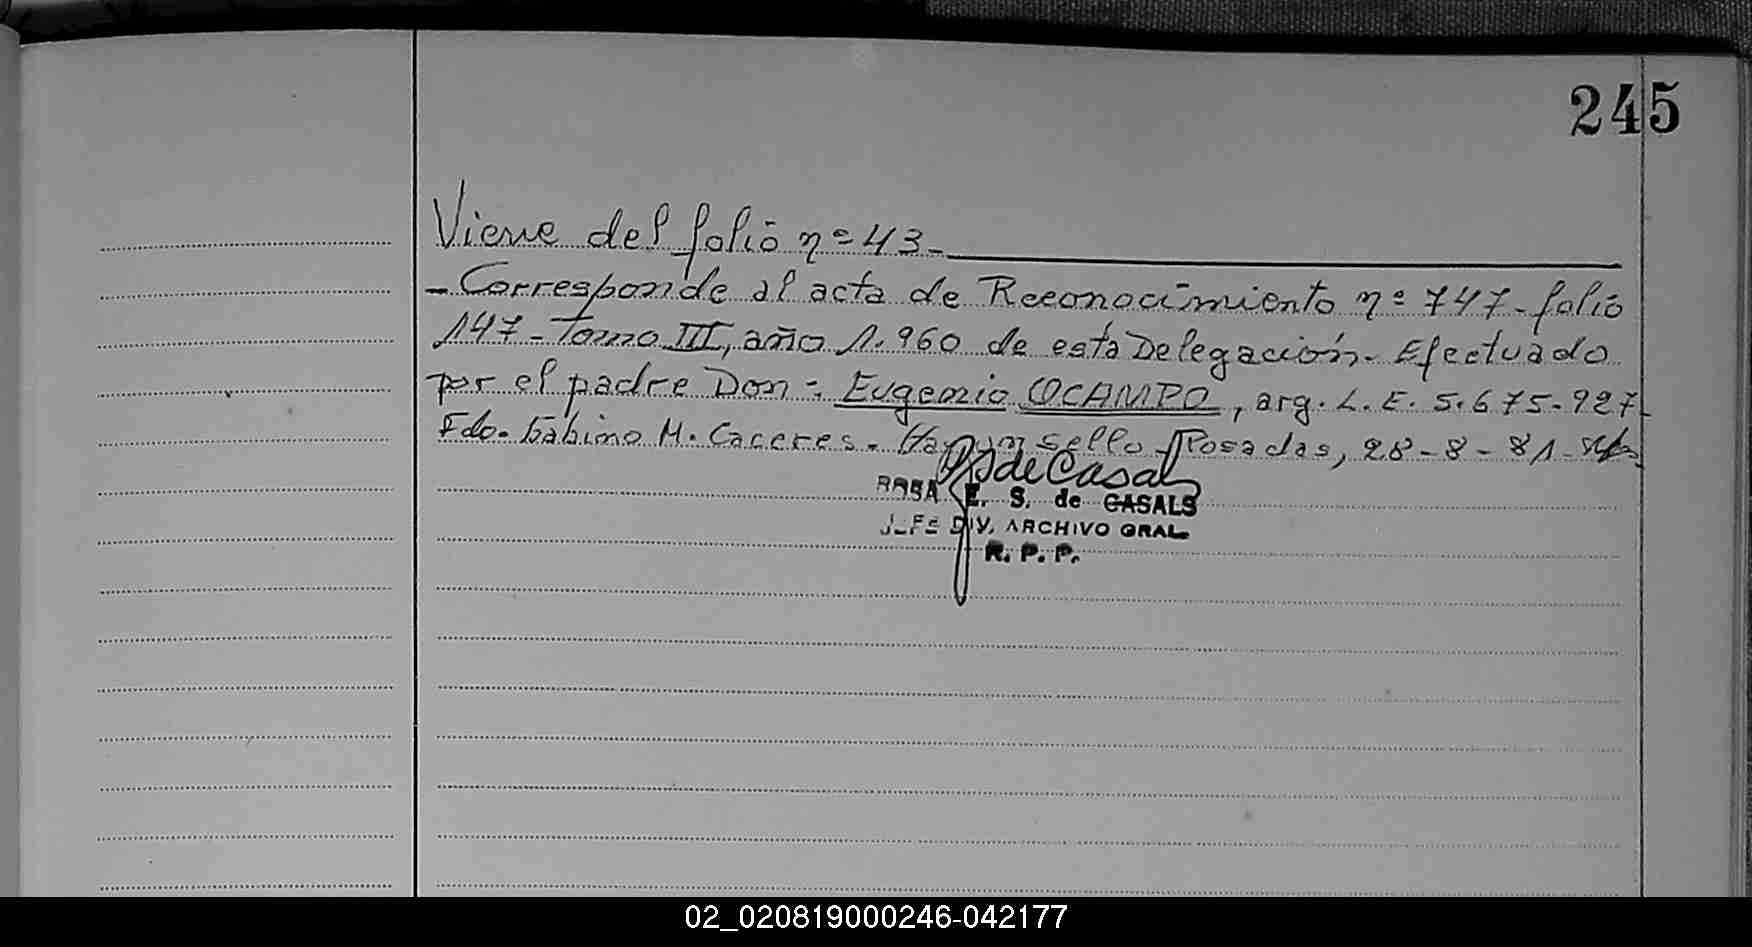 245
Viene del folio nº 43-
- Corresponde al acta de Reconocimiento nº 747- folio
147- Tomo III, año 1.960 de esta Delegación- Efectuado
por el padre Don: Eugenio OCAMPO, arg. L.E. 5.675-927-
Fdo. Gabino M. Caceres. Hay un sello- Posadas, 28-8-81-
de Casals
ROSA E. S. de CASALS
JEFE DIV. ARCHIVO GRAL.
R. P. P.
02_020819000246-042177